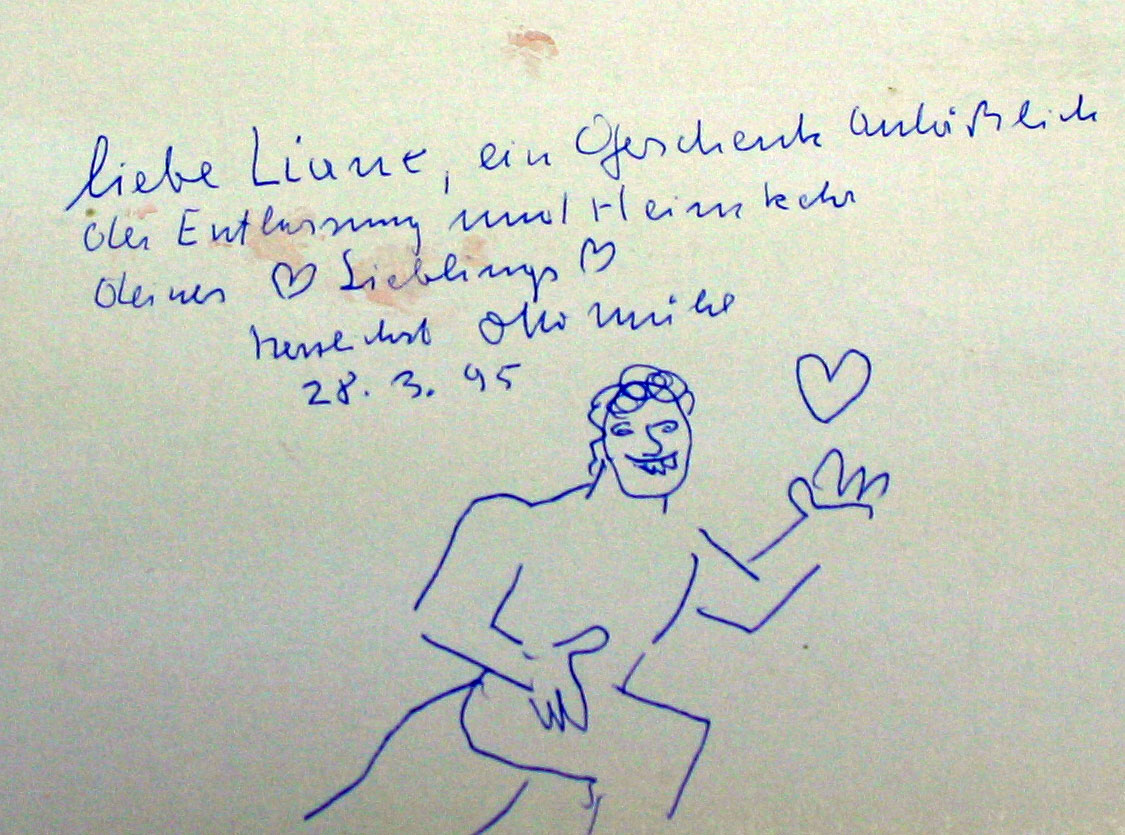 liebe Liane, ein Geschenk anläßlich
der Entlassung und Heimkehr
deines Lieblings
herzlichst Otto Mühl
28. 3. 95